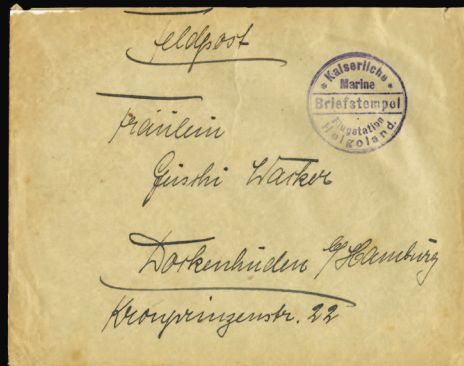 Feldpost
Kaiserliche
Marine
Briefstempel
Flugstation
Helgoland.
Fräulein
Guschi Warker
Dorkenhuden b/Hamburg
Kronprinzenstr. 22